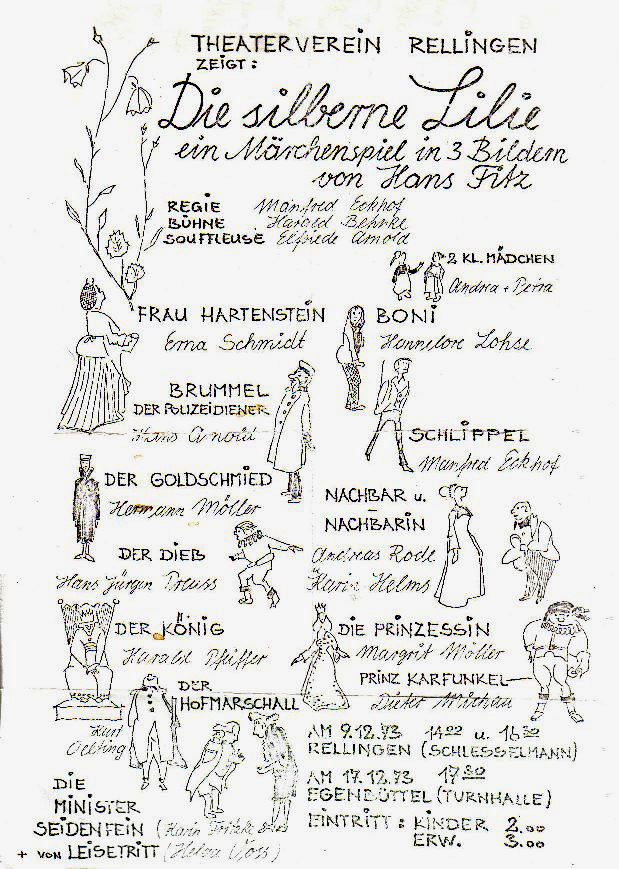 THEATERVEREIN RELLINGEN
ZEIGT:
Die silberne Lilie
ein Märchenspiel in 3 Bildern
von Hans Fitz
REGIE Manfred Eckhof
BÜHNE Harald Behnke
SOUFFLEUSE Elfriede Arnold
2 KL. MÄDCHEN
Andrea + Petra
FRAU HARTENSTEIN
Erna Schmidt
BONI
Hannelore Lohse
BRUMMEL
DER POLIZEIDIENER
Hans Arnold
SCHLIPPEL
Manfred Eckhof
DER GOLDSCHMIED
Hermann Möller
NACHBAR u.
NACHBARIN
Andreas Rode
Karin Helms
DER DIEB
Hans Jürgen Preuss
DER KÖNIG
Harald Pfeiffer
DIE PRINZESSIN
Margrit Möller
PRINZ KARFUNKEL
Dieter Michau
DER
HOFMARSCHALL
Kurt
Oelting
DIE
MINISTER
SEIDENFEIN (Karin Fritzke
+ VON LEISETRITT (Helga Voss)
AM 9.12.73 14 00 u. 16 30
RELLINGEN (SCHLESSELMANN)
AM 17.12.73 17 30
EGENBÜTTEL (TURNHALLE)
EINTRITT: KINDER 2.00
ERW. 3.00